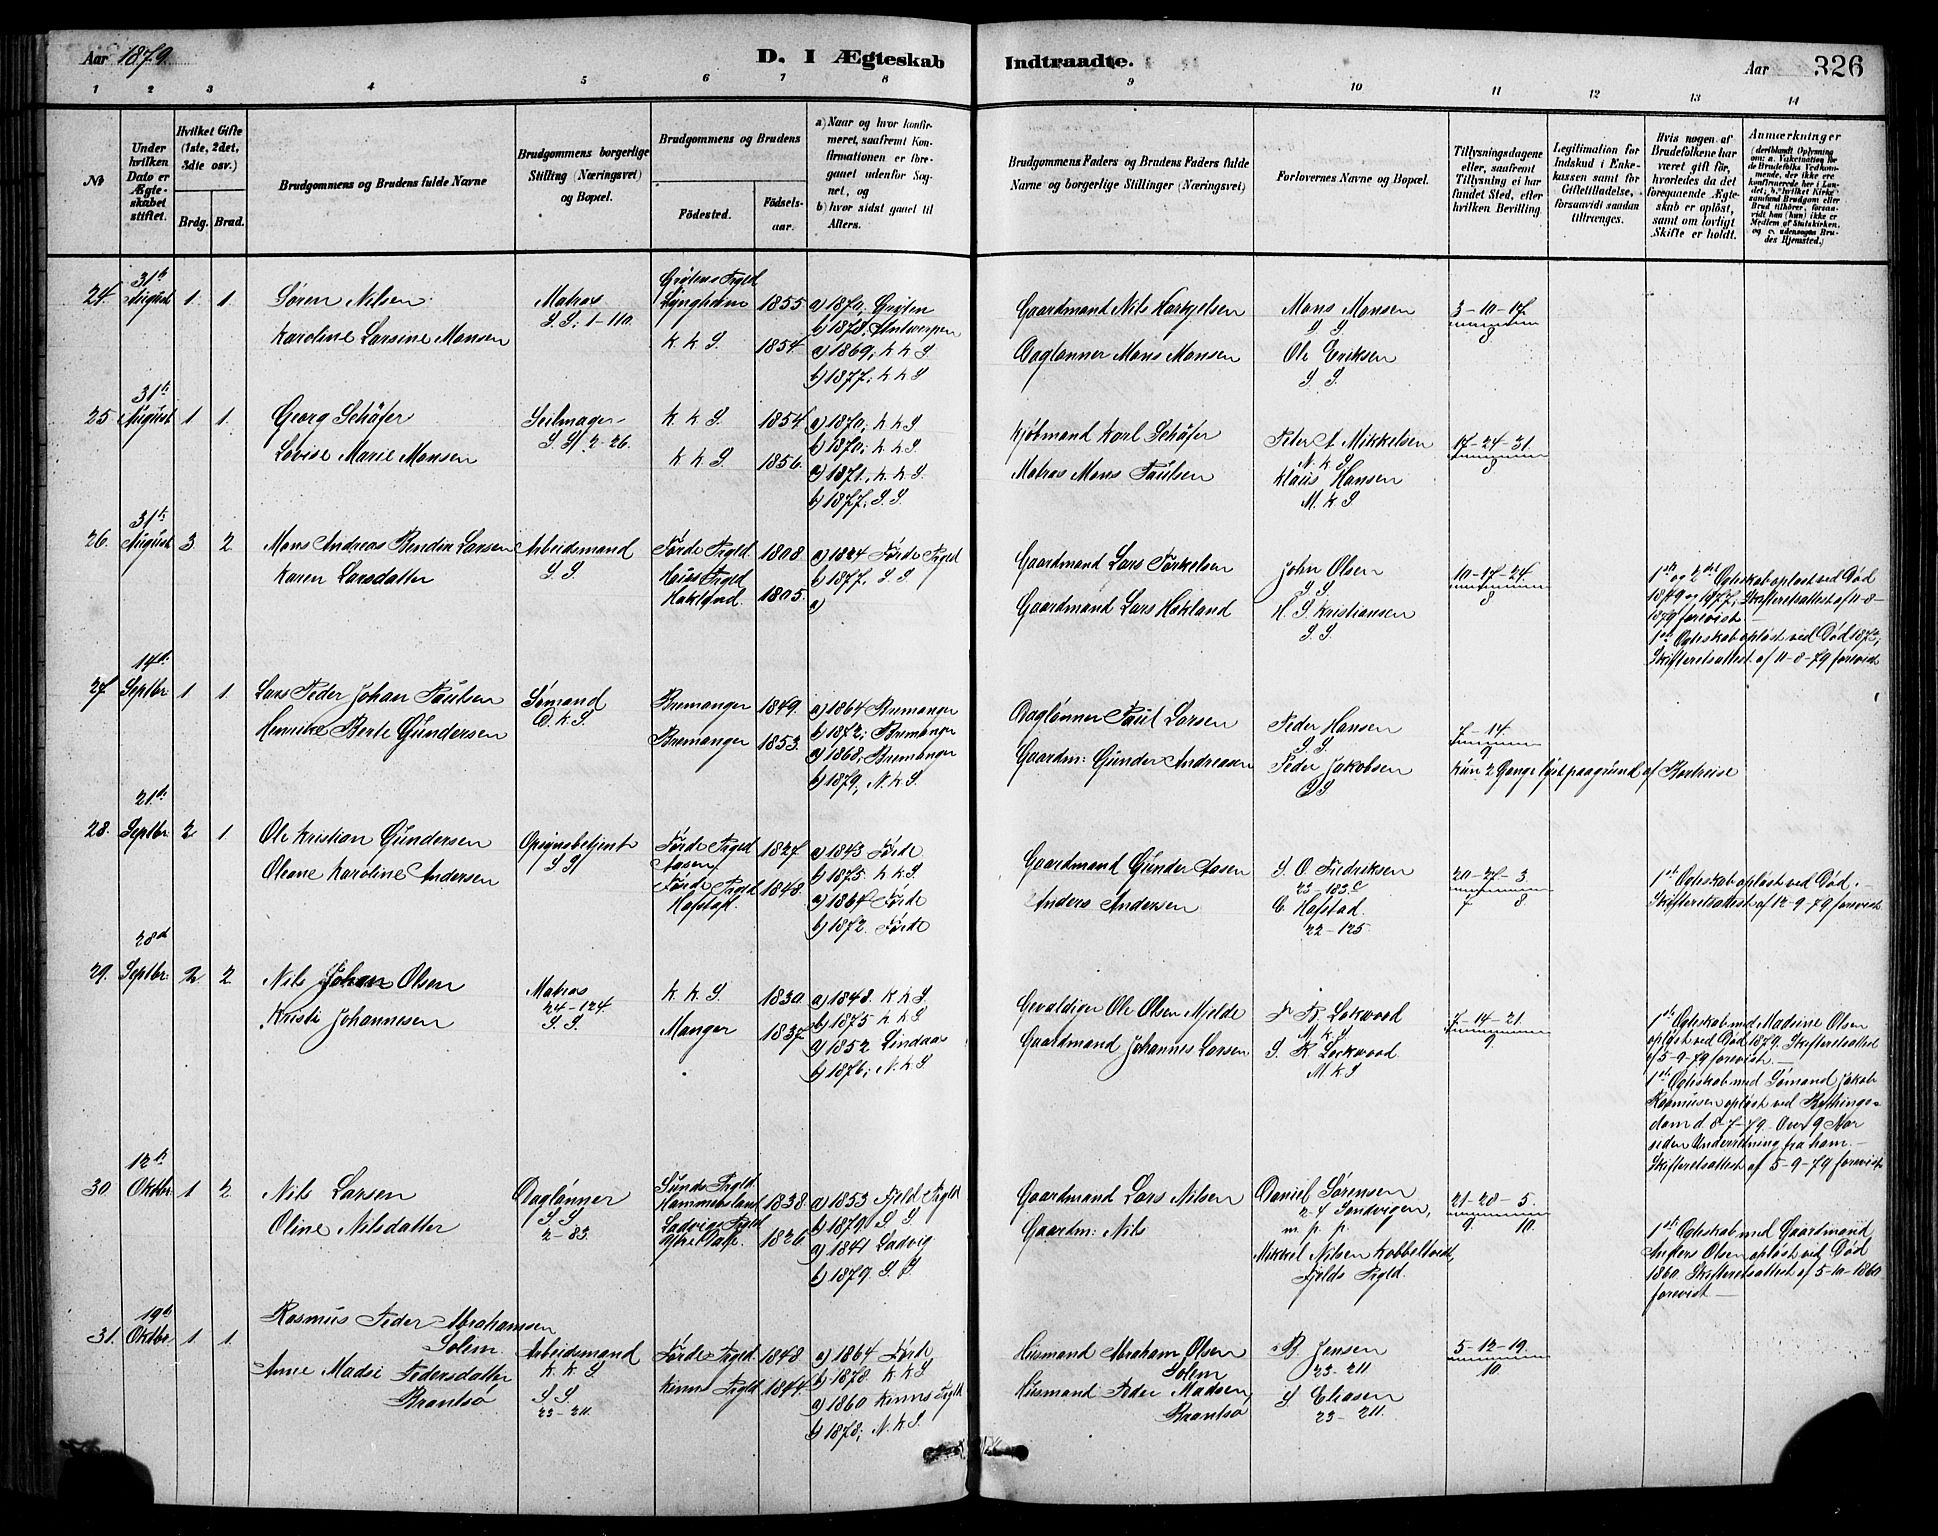 Aar 1879.
D. I Ægteskab Indtraadte.
Aar 326
1 2 3 4 5 6 7 8 9 10 11 12 13 14
No
Under hvilken Dato er Ægteskabet stiftet.
Hvilket Gifte (1ste, 2det, 3die osv.)
Brdg. Brud.
Brudgommens og Brudens fulde Navne
Brudgommens borgerlige Stilling (Næringsvei) og Bopæl.
Brudgommens og Brudens
Födested. Födselsaar.
a) Naar og hvor konfirmeret, saafremt Konfirmationen er foregaaet udenfor Sognet, og
b) hvor sidst gaaet til Alters.
Brudgommens Faders og Brudens Faders fulde Navne og borgerlige Stillinger (Næringsvei)
Forlovernes Navne og Bopæl.
Tillysningsdagene eller, saafremt Tillysning ei har fundet Sted, efter hvilken Bevilling.
Legitimation for Indskud i Enkekassen samt for Giftetilladelse, forsaavidt saadan tiltrænges.
Hvis nogen af Brudefolkene har været gift før, hvorledes da det foregaaende Ægteskab er oplöst, samt om lovligt Skifte er holdt.
Anmærkninger (deriblandt Oplysning om: a. Vakcination for de Brudefolks Vedkommende, der ikke ere konfirmerede her i Landet; b. hvilket Kirkesamfund Brudgom eller Brud tilhörer, forsaavidt han (hun) ikke er Medlem af Statskirken, og c. udensogns Brudes Hjemsted.)
24. 31te August 1. 1. Søren Nilsen Matros S. S. 1-110. Lyngheim 1855 a) 1870, b) 1878, Antwerpen Gaardmand Nils Mons Monsen S S 3-10-17. 8
Karoline Larsine Monsen K. K. S. 1854 a) 1869, K K S. b) 1877, K K S Daglønner Mons Monsen Ole Eriksen S. S.
25 31te August 1 1. Georg Schäfer Seilmager S. S. 2-26. K. K. S 1854 a) 1870, K K S b) 1870, K K S. Kjøbmand Karl Schäfer Peder A Mikkelsen N. K S 17-24-31. 8
Lovise Marie Monsen K K S. 1856. a) 1871, K. K. S b) 1877, S. S. Matros Mons Paulsen Klaus Hansen M. K S
26. 31te August 3 2. Mons Andreas Bendix Larsen Arbeidsmand S. S. Førde Prgld 1808. a) 1824 Førde Prgld b) 1877, S. S Gaardmand Lars Torkelsen John Olsen S. S. 10-17-24 8 1ste og 2det Ægteskab opløst ved Død 1849 og 1877, Skifteretsattest af 11-8-1879 forevist.
Karen Larsdatter Prgld 1805. a) Gaardmand Lars H. S. Kristiansen S S. 1ste Ægteskab opløst ved Død Skifteretsattest af 11-8-79 forevist
27 14de Septbr 1 1. Lars Peder Johan Paulsen Sømand D. K S. Bremanger 1849. a) 1864 Bremanger b) 1872; Bremanger Daglønner Paul Larsen Peder Hansen S. S. 7-14 9
Henrike Berte Gundersen Bremanger 1853. a) 1868; Bremanger b) 1879, N. K S. Gaardm: Gunder Andreasen Peder Jakobsen Kun 2 Gange lyst paagrund af Bortreise
28. 21de Septbr. 2 1. Ole Kristian Gundersen S S Førde Prgld Aasen 1827 a) 1843 Førde b) 1875. K K S. Gaardmand Gunder Aasen S. O. Fredriksen 23-183 c 20-27-3 7 8 1ste Ægteskab opløst ved Død. Skifteretsattest af 12-9-79 forevist.
Oleane Karoline Andersen Førde Prgld 1848. a) 1864 Førde b) 1872. Førde Anders Andersen Hafstad. 22-125
29. 28de Septbr. 2 2. Nils Johan Olsen Matros 24-124. S. S. K. K. S 1830 a) 1848. K K S. b) 1875 K K S. Gevaldiger Ole Olsen Mjelde M. K S 7-14-21. 9 1ste Ægteskab med Madsine Olsen opløst ved Død 1879. Skifteretsattest af 5-9-79 forevist.
Kristi Johannesen Manger 1837 a) 1852 Lindaas b) 1876; N. K. S Gaardmand Johannes Larsen S. K Lockwood M. K S 1ste Ægteskab med Sømand Jakob Rasmusen opløst ved d. 8-7-79. Over 9 Aar siden Underretning fra ham. Skifteretsattest af 5-9-79 forevist
30. 12te Oktbr. 1 2 Nils Larsen Daglønner S S 2-83. Sunds Prgld Hammersland 1838. a) 1853 Fjeld Prgld b) 1879. S S. Gaardmand Lars Nilsen Daniel Sørensen 2-4 Sandvigen, m. p. p. 21-28-5. 9 10.
Oline Nilsdatter Ladvigs Prgld 1826 a) 1841 Ladvig b) 1879. S. S. Gaardm: Nils Mikkel Nilsen Kobbeltvedt, Fjelds Prgld. 1ste Ægteskab med Gaardmand Anders Olsen opløst ved Død 1860. Skifteretsattest af 5-10-1860 forevist
31. 19de Oktbr. 1 1. Rasmus Peder Abrahamsen Solem Arbeidsmand K. K. S Førde Prgld. 1848. a) 1864 Førde b) 1878 K K S Husmand Abraham Olsen Solem B. Jensen 23-211 5-12-19. 10.
Anne Madsi Pedersdatter Brantsø S S. 23-211. Kinns Prgld 1844. a) 1860 Kinns Prgld b) 1878; N. K S. Husmand Peder Madsen, Brantsø S Eliasen 23-211.